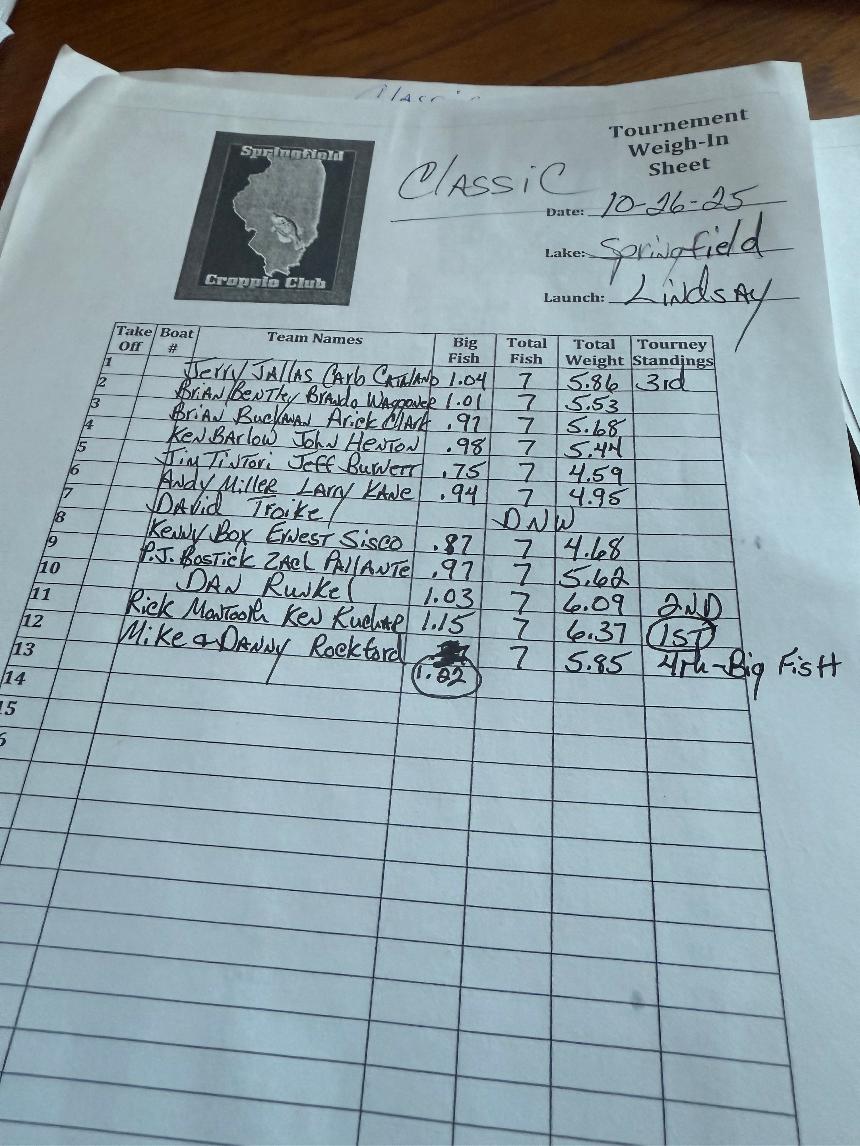 Classic
Springfield
Crappie Club
CLASSIC
Tournement
Weigh-In
Sheet
Date: 10-26-25
Lake: Springfield
Launch: Lindsay
Take Off Boat # Team Names Big Fish Total Fish Total Weight Tourney Standings
1 Jerry Jallas Carb Catalano 1.04 7 5.86 3rd
2 Brian Bentley Brando Waggoner 1.01 7 5.53
3 Brian Buckman Arick Clark .97 7 5.68
4 Ken Barlow John Henton .98 7 5.44
5 Jim Tintori Jeff Burnett .75 7 4.59
6 Andy Miller Larry Kane .94 7 4.95
7 David Troike DNW
8 Kenny Box Ernest Sisco .87 7 4.68
9 P.J. Bostick Zael Pallante .97 7 5.62
10 Dan Runkel 1.03 7 6.09 2ND
11 Rick Montooth Ken Kuchar 1.15 7 6.37 1ST
12 Mike & Danny Rockford 7 5.85 4th-Big Fish
13 1.22
14
15